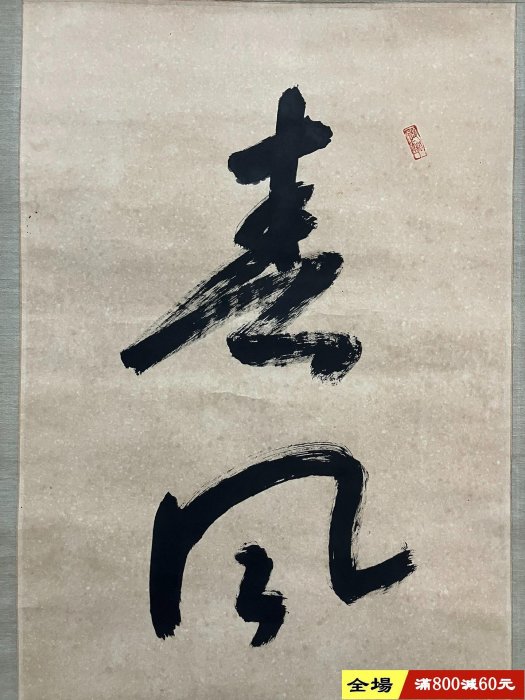 春
風
全場 滿800減60元